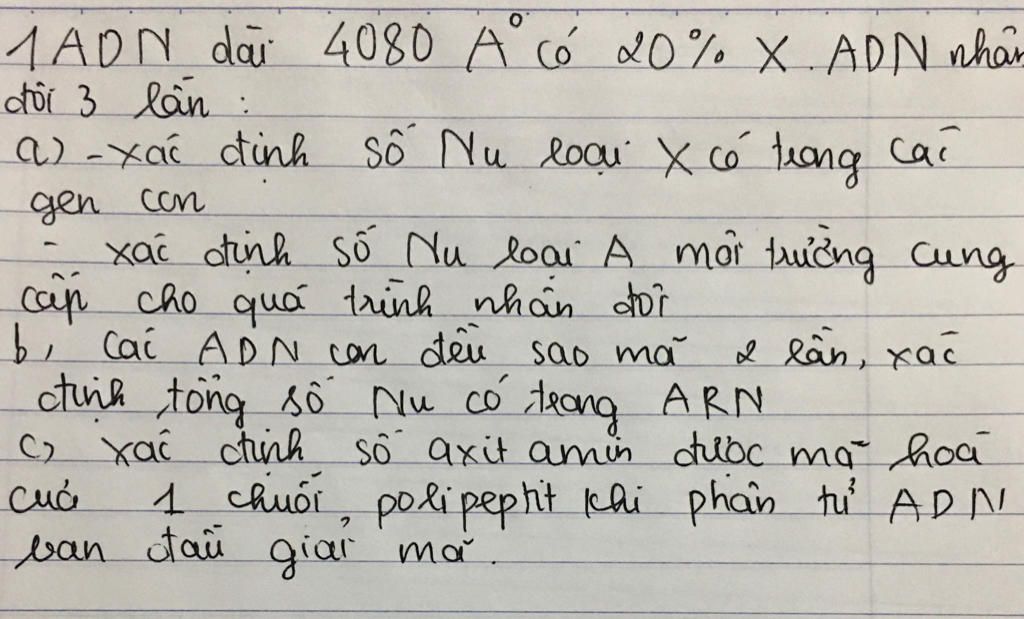 1 ADN dài 4080 A° có 20% X. ADN nhân
đôi 3 lần :
a) - xác định số Nu loại X có trong các
gen con
- xác định số Nu loại A môi trường cung
cấp cho quá trình nhân đôi
b, các ADN con đều sao mã 2 lần, xác
định tổng số Nu có trong ARN
c) xác định số axit amin được mã hoá
của 1 chuỗi polipeptit khi phân tử ADN
ban đầu giải mã.